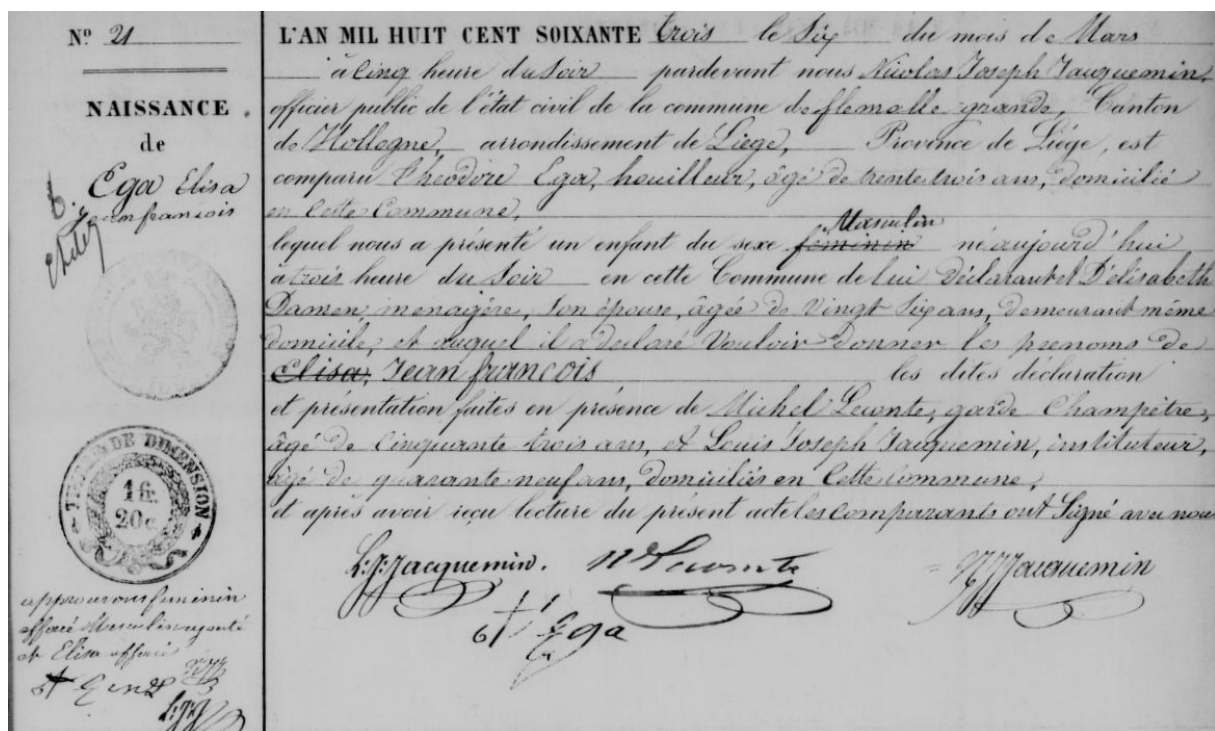 Nº 21
NAISSANCE
de
Ega Elisa
Jean francois
TIMBRE DE DIMENSION
1 fr.
20 c.
approuvons feminin
effacé Masculin ajouté
et Elisa effacé
L'AN MIL HUIT CENT SOIXANTE trois le Six du mois de Mars
à Cinq heure du Soir pardevant nous Nicolas Joseph Jacquemin,
officier public de l'état civil de la commune de flemalle grande, Canton
de Hollogne, arrondissement de Liege, Province de Liége, est
comparu Theodore Ega, houilleur, âgé de trente trois ans, domicilié
en Cette Commune,
Masculin
lequel nous a présenté un enfant du sexe feminin né aujourd'hui
a trois heure du Soir en cette Commune de lui Déclarant et D'elisabeth
Damen, menagère, Son épouse, âgée de Vingt Six ans, demeurant même
domicile, et auquel il a declaré Vouloir Donner les prenoms de
Elisa, Jean francois les dites déclaration
et présentation faites en présence de Michel Leconte, garde Champêtre,
âgé de Cinquante trois ans, et Louis Joseph Jacquemin, instituteur,
âgé de quarante neuf ans, domiciliés en Cette Commune,
et après avoir reçu lecture du présent acte les comparants ont Signé avec nous
L:J:Jacquemin. Leconte NJJacquemin
Ega
L:J:J